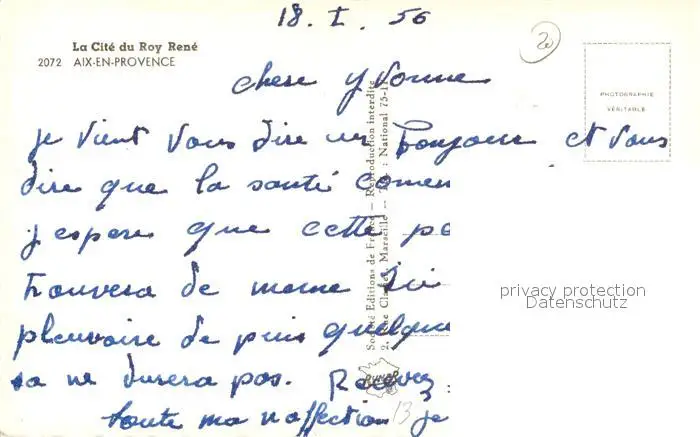 18. I. 56
20
La Cité du Roy René
2072 AIX-EN-PROVENCE
PHOTOGRAPHIE
VÉRITABLE
chere yvonne
je vient vous dire un bonjour et vous
dire que la santé comen
j espere que cette pe
trouvera de meme
pleuvoire de puis quelque
sa ne durera pas. Recevez
toute ma n affection je
13
Société Editions de France — Reproduction interdite
2, rue Marseille — : National 75-11
privacy protection
Datenschutz